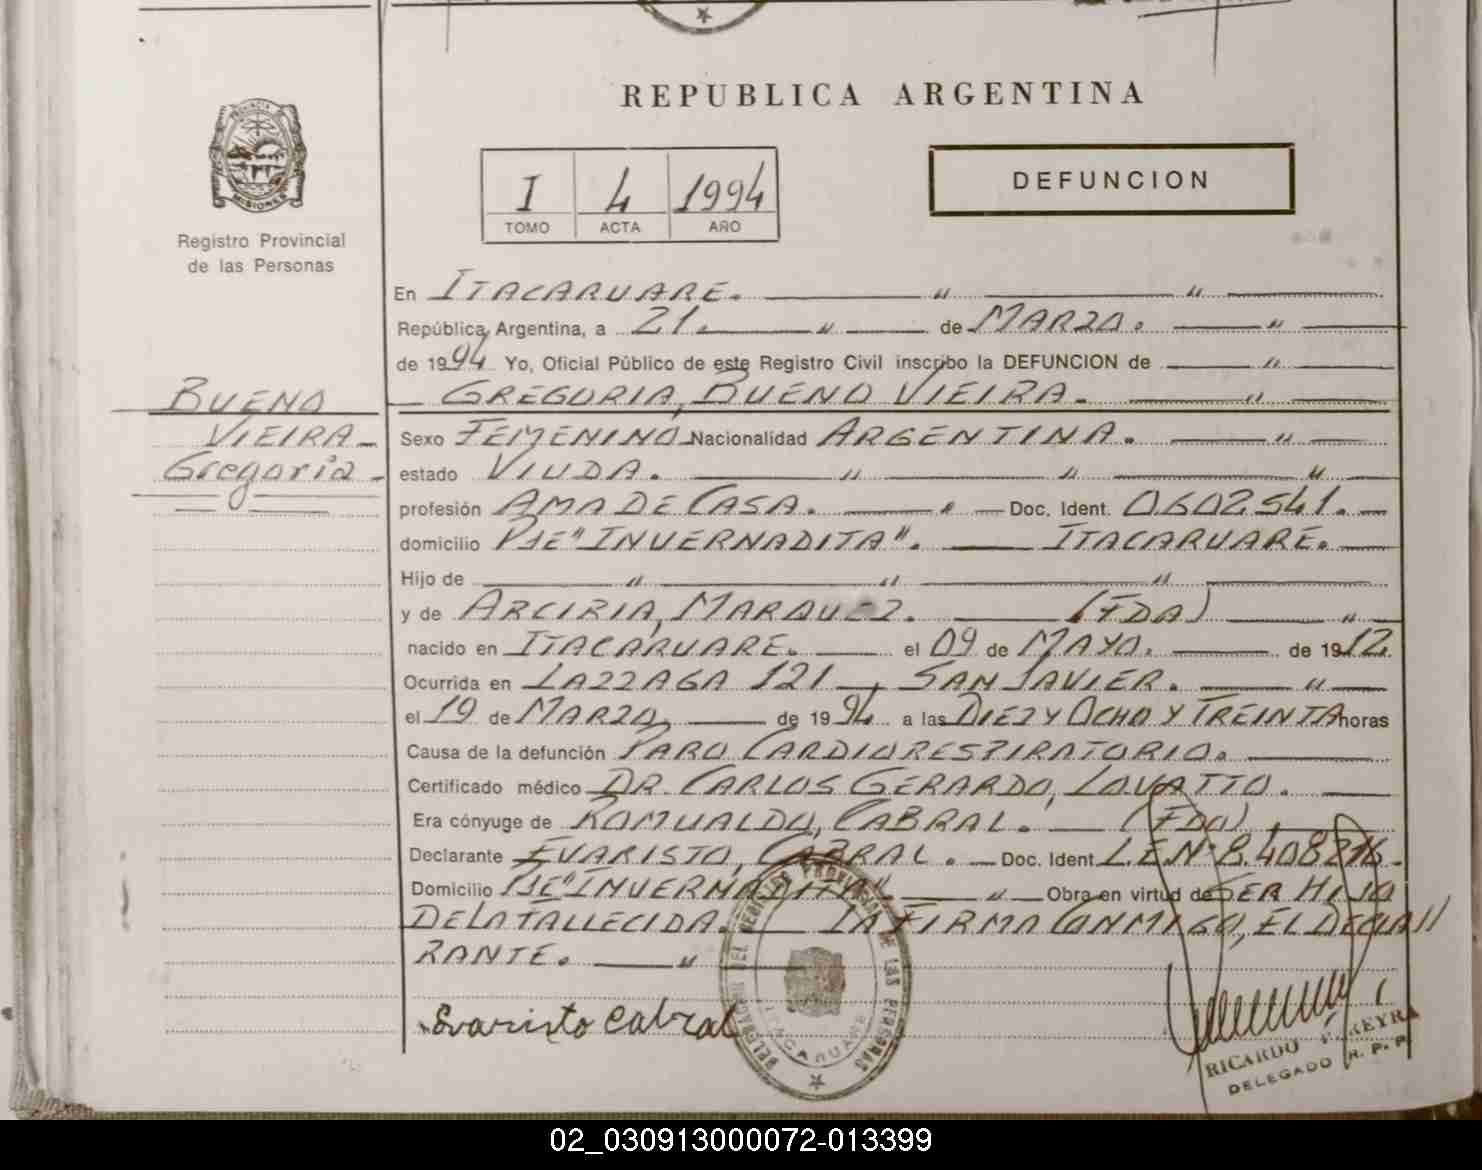 REPUBLICA ARGENTINA
PROVINCIA
MISIONES
Registro Provincial
de las Personas
I 4 1994
TOMO ACTA AÑO
DEFUNCION
En ITACARUARE. " "
República Argentina, a 21. " de MARZO. "
de 1994 Yo, Oficial Público de este Registro Civil inscribo la DEFUNCION de "
GREGORIA, BUENO VIEIRA. "
BUENO
VIEIRA
Gregoria
Sexo FEMENINO Nacionalidad ARGENTINA. "
estado VIUDA. " " "
profesión AMA DE CASA. " Doc. Ident. 0602541.
domicilio PJE "INVERNADITA". ITACARUARE.
Hijo de " " "
y de ARCIRIA, MARQUEZ. (FDA) "
nacido en ITACARUARE. el 09 de MAYO. de 1912.
Ocurrida en LAZZAGA 121, SAN JAVIER. "
el 19 de MARZO, de 1994 a las DIEZ Y OCHO Y TREINTA horas
Causa de la defunción PARO CARDIORESPIRATORIO.
Certificado médico DR. CARLOS GERARDO, LOVATTO.
Era cónyuge de ROMUALDO, CABRAL. (FDO)
Declarante EVARISTO, CABRAL. Doc. Ident L.E.Nº 8.408.216.
Domicilio PJE "INVERNADITA". " Obra en virtud de SER HIJO
DE LA FALLECIDA. LA FIRMA CONMIGO, EL DECLA//
RANTE. "
Evaristo Cabral
DELEGACION DEL REGISTRO PROVINCIAL DE LAS PERSONAS
RICARDO PEREYRA
DELEGADO R. P. P.
02_030913000072-013399